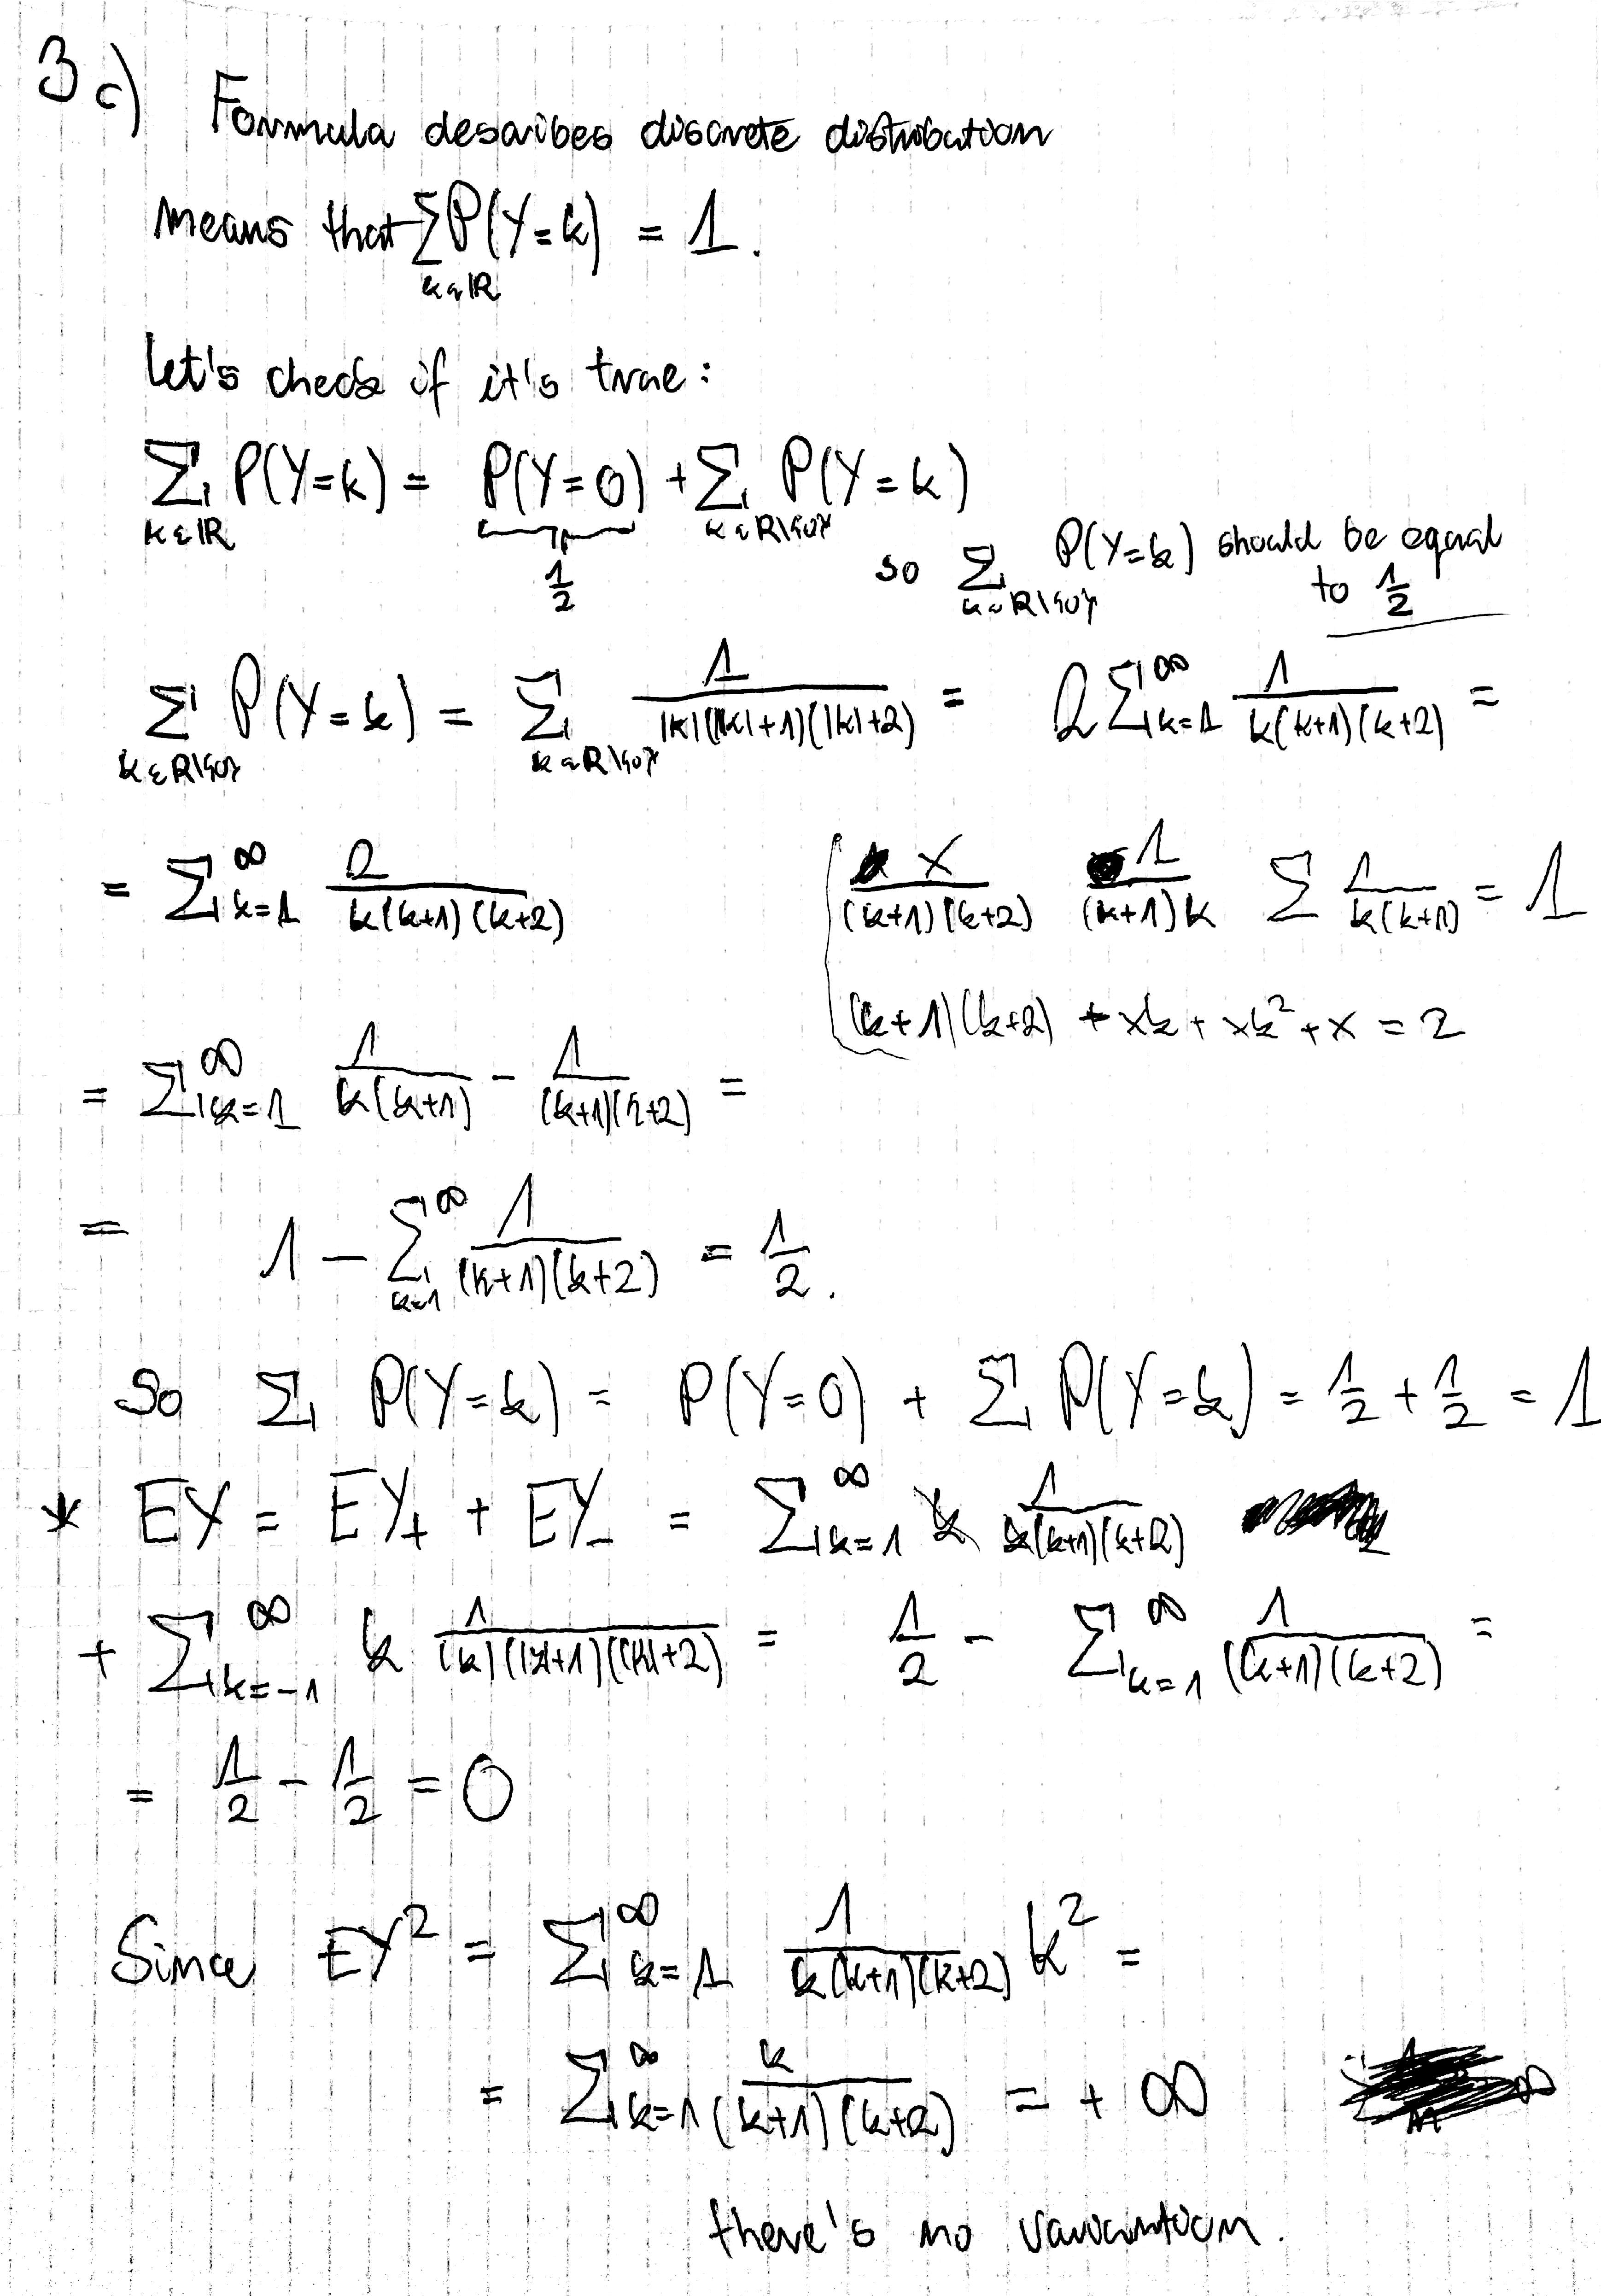 3 c) Formula describes discrete distribution
means that ∑_{k∈ℝ} P(Y=k) = 1.
Let's check if it's true:
∑_{k∈ℝ} P(Y=k) = P(Y=0) + ∑_{k∈ℝ\{0}} P(Y=k)
1/2
so ∑_{k∈ℝ\{0}} P(Y=k) should be equal
to 1/2
∑_{k∈ℝ\{0}} P(Y=k) = ∑_{k∈ℝ\{0}} 1/(|k|(|k|+1)(|k|+2)) = 2∑_{k=1}^∞ 1/(k(k+1)(k+2)) =
= ∑_{k=1}^∞ 2/(k(k+1)(k+2))
x/((k+1)(k+2)) 1/((k+1)k) ∑ 1/(k(k+1)) = 1
(k+1)(k+2) + xk + xk² + x = 2
= ∑_{k=1}^∞ 1/(k(k+1)) - 1/((k+1)(k+2)) =
= 1 - ∑_{k=1}^∞ 1/((k+1)(k+2)) = 1/2.
So ∑ P(Y=k) = P(Y=0) + ∑ P(Y=k) = 1/2 + 1/2 = 1
* EY = EY₊ + EY₋ = ∑_{k=1}^∞ k 1/(k(k+1)(k+2))
+ ∑_{k=-1}^∞ k 1/(|k|(|k|+1)(|k|+2)) = 1/2 - ∑_{k=1}^∞ 1/((k+1)(k+2)) =
= 1/2 - 1/2 = 0
Since EY² = ∑_{k=1}^∞ 1/(k(k+1)(k+2)) k² =
= ∑_{k=1}^∞ k/((k+1)(k+2)) = + ∞
there's no